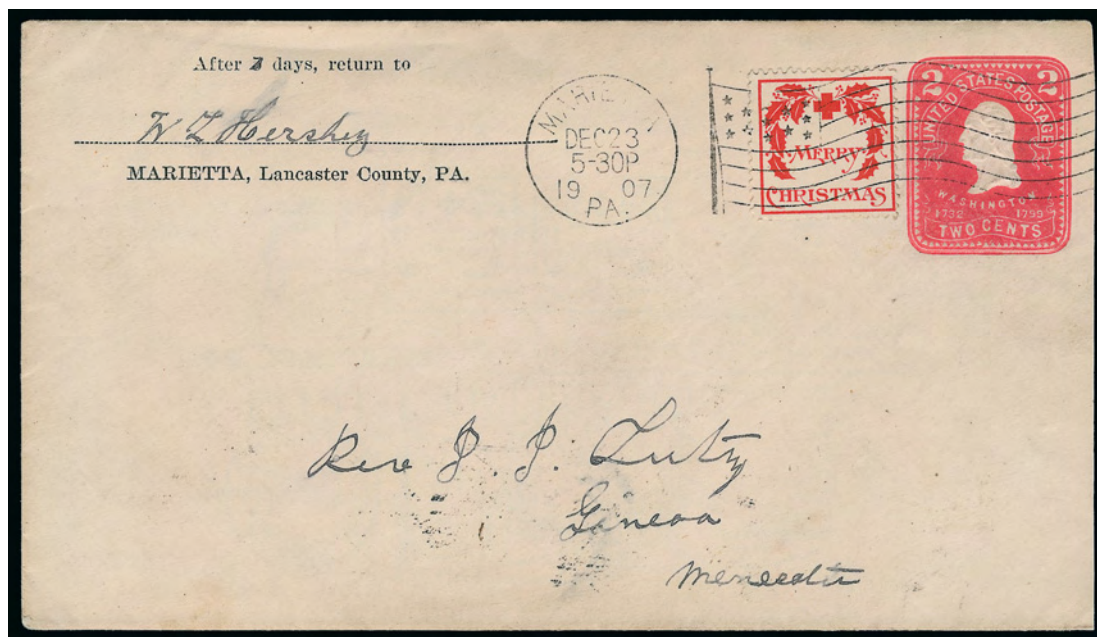 After 7 days, return to
W Z Hershey
MARIETTA, Lancaster County, PA.
MARIETTA
DEC 23
5-30P
19 07
PA.
MERRY
CHRISTMAS
2 2
UNITED STATES POSTAGE
WASHINGTON
1732 1799
TWO CENTS
Rev J. J.